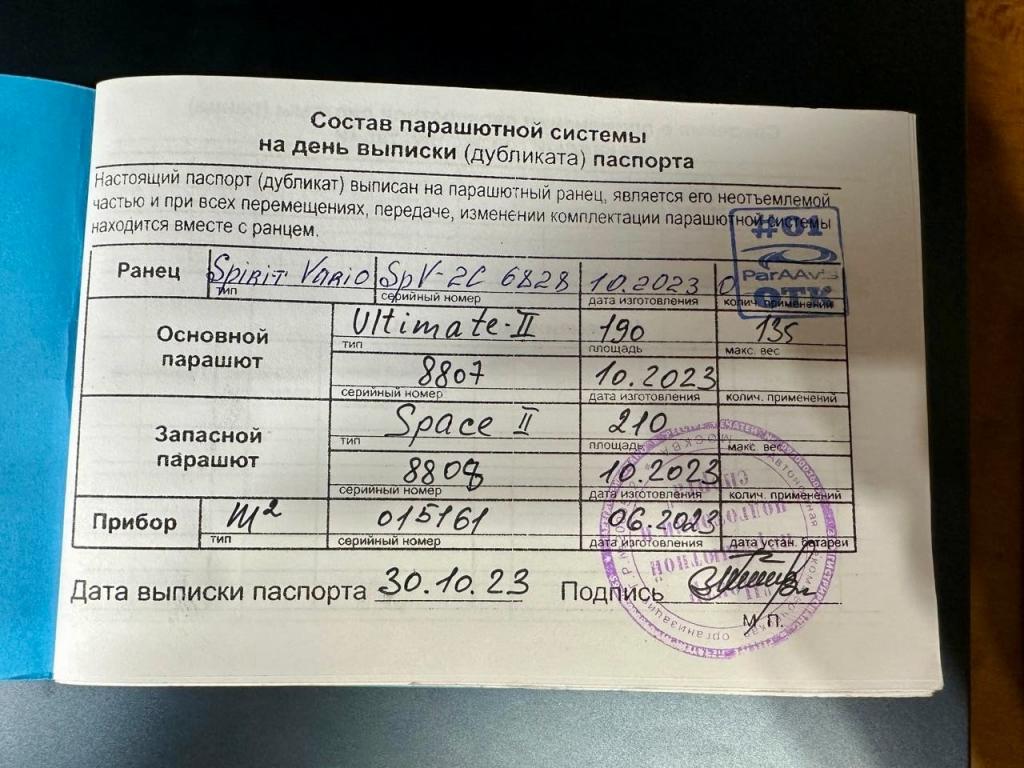 Состав парашютной системы
на день выписки (дубликата) паспорта
Настоящий паспорт (дубликат) выписан на парашютный ранец, является его неотъемлемой
частью и при всех перемещениях, передаче, изменении комплектации парашютной системы
находится вместе с ранцем.
#01
ParAAvis
ОТК
Ранец Spirit Vario SpV-2C 6828 10.2023 0
тип серийный номер дата изготовления колич. применений
Основной парашют
Ultimate-II 190 135
тип площадь макс. вес
8807 10.2023
серийный номер дата изготовления колич. применений
Запасной парашют
Space II 210
тип площадь макс. вес
8808 10.2023
серийный номер дата изготовления колич. применений
Прибор m² 015161 06.2023
тип серийный номер дата изготовления дата устан. батареи
Дата выписки паспорта 30.10.23 Подпись
М.П.